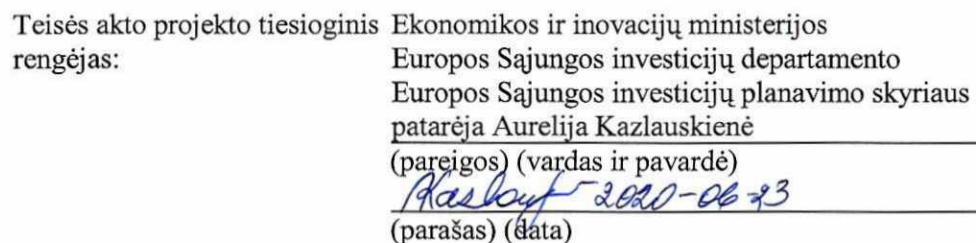 Teisės akto projekto tiesioginis Ekonomikos ir inovacijų ministerijos
rengėjas: Europos Sąjungos investicijų departamento
Europos Sąjungos investicijų planavimo skyriaus
patarėja Aurelija Kazlauskienė
(pareigos) (vardas ir pavardė)
2020-06-23
(parašas) (data)